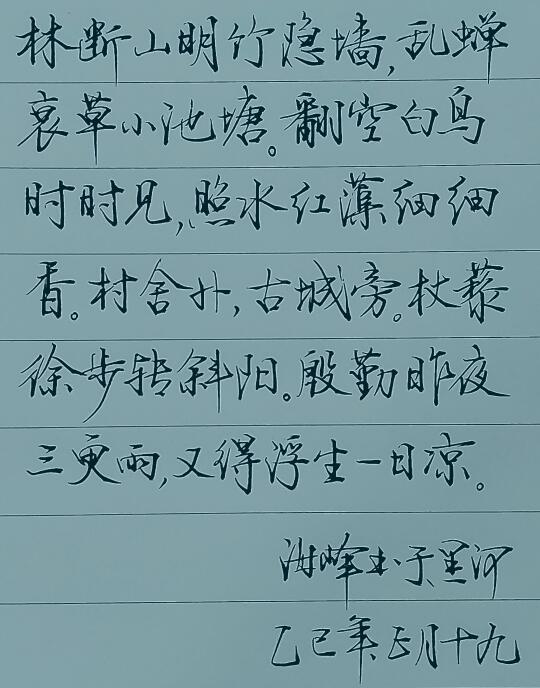 林断山明竹隐墙,乱蝉
衰草小池塘。翻空白鸟
时时见,照水红蕖细细
香。村舍外,古城旁。杖藜
徐步转斜阳。殷勤昨夜
三更雨,又得浮生一日凉。
峰书于黑河
乙巳年正月十九